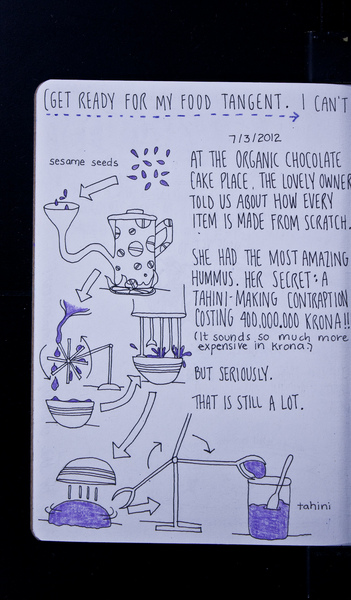 (GET READY FOR MY FOOD TANGENT. I CAN'T
7/3/2012
sesame seeds
AT THE ORGANIC CHOCOLATE
CAKE PLACE, THE LOVELY OWNER
TOLD US ABOUT HOW EVERY
ITEM IS MADE FROM SCRATCH.
SHE HAD THE MOST AMAZING
HUMMUS. HER SECRET: A
TAHINI-MAKING CONTRAPTION
COSTING 400.000.000 KRONA!!
(It sounds so much more
expensive in Krona?)
BUT SERIOUSLY.
THAT IS STILL A LOT.
tahini